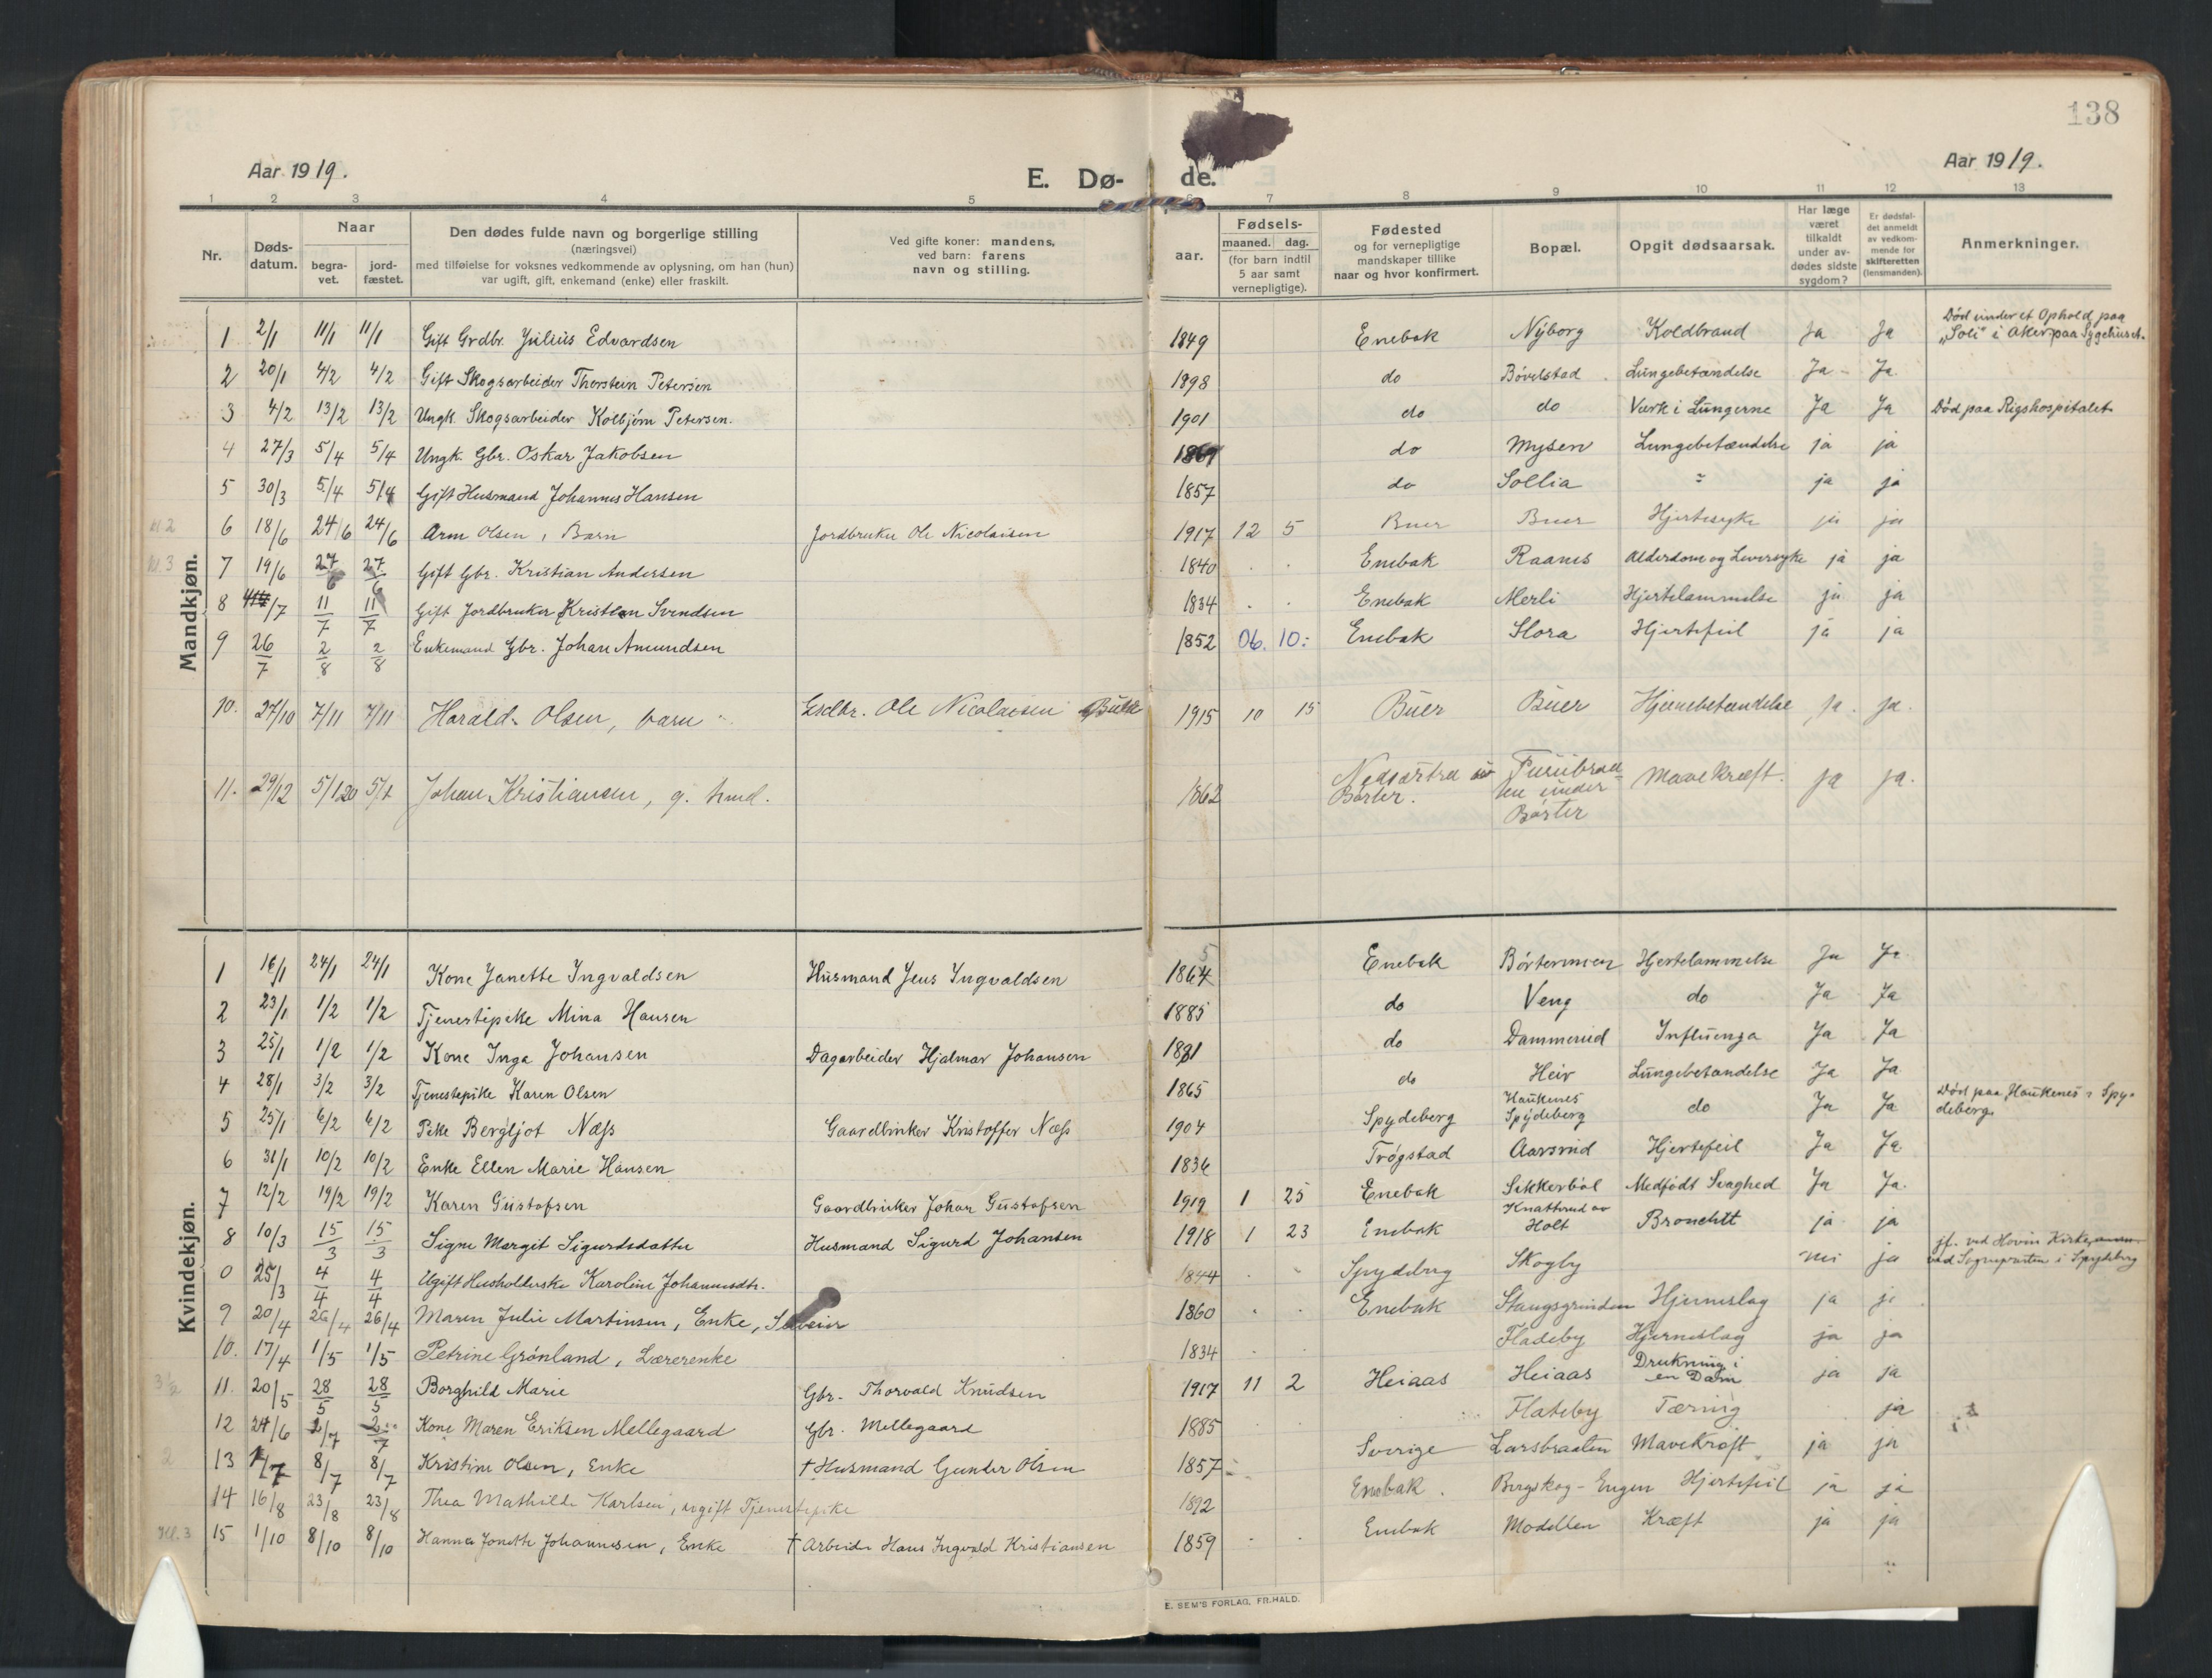 138
Aar 1919.
Aar 1919.
E. Dø- de.
1 2 3 4 5 6 7 8 9 10 11 12 13
Nr.
Døds-
datum.
Naar
begra-
vet.
jord-
fæstet.
Den dødes fulde navn og borgerlige stilling
(næringsvei)
med tilføielse for voksnes vedkommende av oplysning, om han (hun)
var ugift, gift, enkemand (enke) eller fraskilt.
Ved gifte koner: mandens,
ved barn: farens
navn og stilling.
aar.
Fødsels-
maaned. dag.
(for barn indtil
5 aar samt
vernepligtige).
Fødested
og for vernepligtige
mandskaper tillike
naar og hvor konfirmert.
Bopæl.
Opgit dødsaarsak.
Har læge
været
tilkaldt
under av-
dødes sidste
sygdom?
Er dødsfal-
det anmeldt
av vedkom-
mende for
skifteretten
(lensmanden).
Anmerkninger.
Mandkjøn.
Død under et Ophold paa
1 2/1 11/1 11/1 Gift Grdbr. Julius Edvardsen 1849 Enebak Nyborg Koldbrand Ja Ja "Soli" i Aker paa Sygehuset.
2 20/1 4/2 4/2 Gift Skogsarbeider Thorstein Petersen 1898 do Bövelstad Lungebetændelse Ja Ja
3 4/2 13/2 13/2 Ungk. Skogsarbeider Kolbjörn Petersen. 1901 do do Værk i Lungerne Ja Ja Död paa Rigshospitalet
4 27/3 5/4 5/4 Ungk. Gbr. Oskar Jakobsen 1869 do Mysen Lungebetændelse ja ja
5 30/3 5/4 5/4 Gift Husmand Johannes Hansen 1857 do Sollia " ja ja
6 18/6 24/6 24/6 Arm Olsen, Barn Jordbruker Ole Nicolaisen 1917 12 5 Buer Buer Hjertesyke ja ja
Kl. 3 7 19/6 27/6 27/6 Gift Gbr. Kristian Andersen 1840 Enebak Raanes Alderdom og Leversyke ja ja
8 /7 11/7 11/7 Gift Jordbruker Kristian Svendsen 1834 Enebak Merli Hjertelammelse ja ja
9 26/7 2/8 2/8 Enkemand Gbr. Johan Amundsen 1852 06. 10: Enebak Slora Hjertefeil ja ja
10. 27/10 7/11 7/11 Harald Olsen, barn Ole Nicolaisen 1915 10 15 Buer Buer Hjernebetændelse ja. ja.
11. 29/12 5/1 20 5/1 Johan Kristiansen, g. hmd. 1862 Børter. under Børter Mavekræft. ja ja.
Kvindekjøn.
1 16/1 24/1 24/1 Kone Janette Ingvaldsen Husmand Jens Ingvaldsen 1864 5 Enebak Börtermoen Hjertelammelse Ja Ja
2 23/1 1/2 1/2 Tjenestepike Mina Hansen 1885 do Veng do Ja Ja
3 25/1 1/2 1/2 Kone Inga Johansen Dagarbeider Hjalmar Johansen 1881 do Dammerud Influenza Ja Ja
4 28/1 3/2 3/2 Tjenestepike Karen Olsen 1865 do Heir Lungebetændelse Ja Ja
5 25/1 6/2 6/2 Pike Bergljot Næss Gaardbruker Kristoffer Næss 1904 Spydeberg Haukenes Spydeberg do Ja Ja Död paa Haukenes i Spydeberg
6 31/1 10/2 10/2 Enke Ellen Marie Hansen 1836 Trögstad Aarsrud Hjertefeil Ja Ja
7 12/2 19/2 19/2 Karen Gustafsen Gaardbruker Johan Gustafsen 1919 1 25 Enebak Sikkerböl Medfödt Svaghed Ja Ja.
8 10/3 15/3 15/3 Signe Margit Sigurdsdatter Husmand Sigurd Johansen 1918 1 23 Enebak Knatterud av Holt Bronchitt ja ja
0 25/3 4/4 4/4 Ugift Husholderske Karoline Johannesdtr. 1844 Spydeberg Skogby nei ja jf. ved Hovin Kirke
ved Sognepresten i Spydeberg
9 20/4 26/4 26/4 Maren Julie Martinsen, Enke, 1860 Enebak Stangsgrinden Hjerneslag ja ja
10. 17/4 1/5 1/5 Petrine Grönland, Lærerenke 1834 Fladeby Hjerneslag ja ja
11. 20/5 28/5 28/5 Borghild Marie Gbr. Thorvald Knudsen 1917 11 2 Heiaas Heiaas Drukning i en Dam ja ja
12 24/6 2/7 2/7 Kone Maren Eriksen Mellegaard Gbr. Mellegaard 1885 Flateby Tæring ja
13 1/7 8/7 8/7 Kristine Olsen, Enke † Husmand Gunder Olsen 1857 Sverige Larsbraaten Mavekræft ja ja
14 16/8 23/8 23/8 Thea Mathilde Karlsen, ugift Tjenestepike 1892 Enebak. Bergskog-Engen Hjertefeil ja ja
Kl. 3 15 1/10 8/10 8/10 Hanna Jonette Johannesen, Enke † Arbeider Hans Ingvald Kristiansen 1859 Enebak Modellen Kræft ja ja
E. SEM'S FORLAG, FR.HALD.